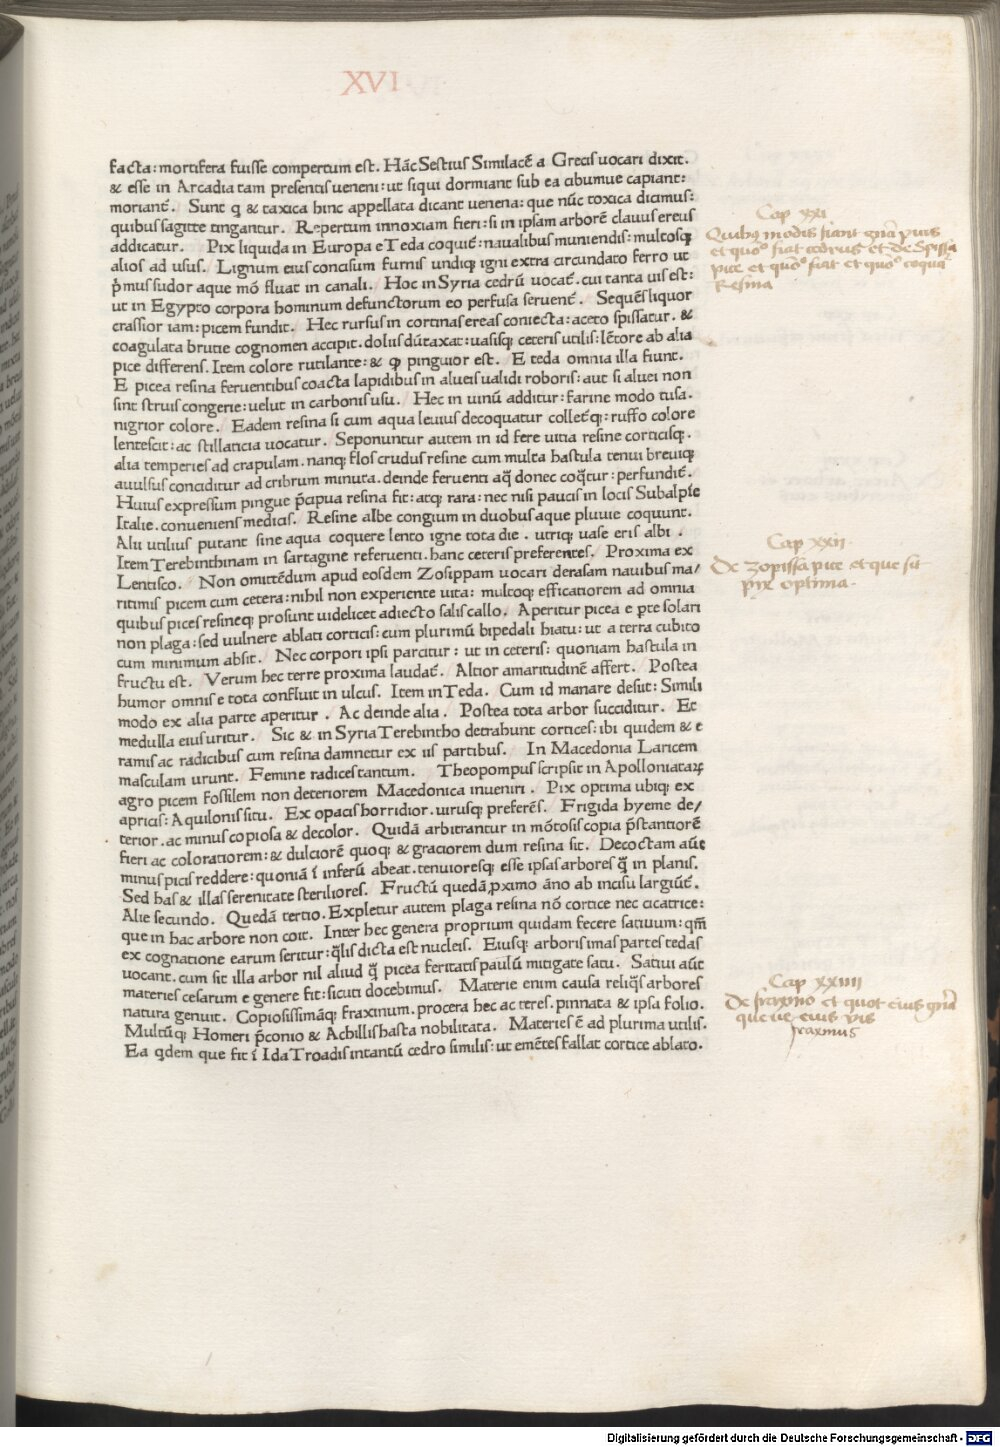 XVI
facta: mortifera fuisse compertum est. Hãc Sestius Similacẽ a Grecis uocari dixit.
& esse in Arcadia tam presentis ueneni: ut siqui dormiant sub ea cibumue capiant:
moriant̃. Sunt q & taxica hinc appellata dicant uenena: que nũc toxica dicimus:
quibus sagitte tingantur. Repertum innoxiam fieri: si in ipsam arborẽ clauus ereus
addicatur. Pix liquida in Europa e Teda coquit̃: naualibus muniendis: multosq;
alios ad usus. Lignum eius concisum furnis undiq; igni extra circundato feruo ut
p̃mus sudor aque mõ fluat in canali. Hoc in Syria cedrũ uocat̃. cui tanta uis est:
ut in Egypto corpora hominum defunctorum eo perfusa seruent̃. Sequẽs liquor
crassior iam: picem fundit. Hec rursus in cortinas ereas coniecta: aceto spissatur. &
coagulata brutie cognomen accipit. dolus dũtaxat: uasisq; ceteris utilis: lẽtore ab alia
pice differens. Item colore rutilante: & ꝙ pinguior est. E teda omnia illa fiunt.
E picea resina feruentibus coacta lapidibus in alueis ualidi roboris: aut si aluei non
sint struis congerie: uelut in carbonis usu. Hec in uinũ additur: farine modo tusa.
nigrior colore. Eadem resina si cum aqua leuius decoquatur collet̃q; ruffo colore
lentescit: ac stillaticia uocatur. Seponuntur autem in id fere uitia resine corticisq;.
alia temperies ad crapulam. nanq; flos crudus resine cum multa hastula tenui breuiq;
auulsus conciditur ad cribrum minuta. deinde feruenti aq̃ donec coq̃tur: perfundit̃.
Huius expressum pingue p̃cipua resina fit: atq; rara: nec nisi paucis in locis Subalpĩe
Italie. conueniens medicis. Resine albe congium in duobus aque pluuie coquunt.
Alii utilius putant sine aqua coquere lento igne tota die. utriq; uase eris albi.
Item Terebinthinam in sartagine referuenti. hanc ceteris preferentes. Proxima ex
Lentisco. Non omittẽdum apud eosdem Zosippam uocari derasam nauibus ma/
ritimis picem cum cetera: nihil non experiente uita: multoq; efficatiorem ad omnia
quibus pices resineq; prosunt uidelicet adiecto salis callo. Aperitur picea e p̱te solari
non plaga: sed uulnere ablati corticis: cum plurimũ bipedali hiatu: ut a terra cubito
cum minimum absit. Nec corpori ipsi parcitur: ut in ceteris: quoniam hastula in
fructu est. Verum hec terre proxima laudat̃. Altior amaritudinẽ affert. Postea
humor omnis e tota confluit in ulcus. Item in Teda. Cum id manare desiit: Simili
modo ex alia parte aperitur. Ac deinde alia. Postea tota arbor succiditur. Et
medulla eius uritur. Sic & in Syria Terebintho detrahunt cortices: ibi quidem & e
ramis ac radicibus cum resina damnetur ex iis partibus. In Macedonia Laricem
masculam urunt. Femine radices tantum. Theopompus scripsit in Apolloniataꝝ
agro picem fossilem non deteriorem Macedonica inueniri. Pix optima ubiq; ex
apricis: Aquilonis situ. Ex opacis horridior. uirusq; preferẽs. Frigida hyeme de/
terior. ac minus copiosa & decolor. Quidã arbitrantur in mõtosis copia p̃stantiorẽ
fieri ac coloratiorem: & dulciorẽ quoq; & graciorem dum resina sit. Decoctam aũt
minus picis reddere: quoniã ĩ inferũ abeat. tenuioresq; esse ipsas arbores q̃ in planis.
Sed has & illas serenitate steriliores. Fructũ quedã proximo ãno ab incisu largiũt̃.
Alie secundo. Quedã tertio. Expletur autem plaga resina nõ cortice nec cicatrice:
que in hac arbore non coit. Inter hec genera proprium quidam fecere satiuum: qm̃
ex cognatione earum seritur: q̃lis dicta est nucleis. Eiusq; arboris imas partes tedas
uocant. cum sit illa arbor nil aliud q̃ picea feritatis paulũ mitigate satu. Satiui aũt
materies cesarum e genere fit: sicuti docebimus. Materie enim causa reliq̃s arbores
natura genuit. Copiosissimãq; fraxinum. procera hec ac teres. pinnata & ipsa folio.
Multũq; Homeri p̃conio & Achillis hasta nobilitata. Materies ẽ ad plurima utilis.
Ea qdem que fit ĩ Ida Troadis intantũ cedro similis: ut emẽtes fallat cortice ablato.
Cap xxi
Quibus modis fiant gña picis
et quo° fiat cedrus et de spissa
pice et quõ° fiat et quo° coquat̃
Resina
Cap xxii.
De zopissa pice et que sit
pix optima.
Cap xxiiii
De fraxino et quot eius gña
que ue eius vis
fraxinus
Digitalisierung gefördert durch die Deutsche Forschungsgemeinschaft - DFG